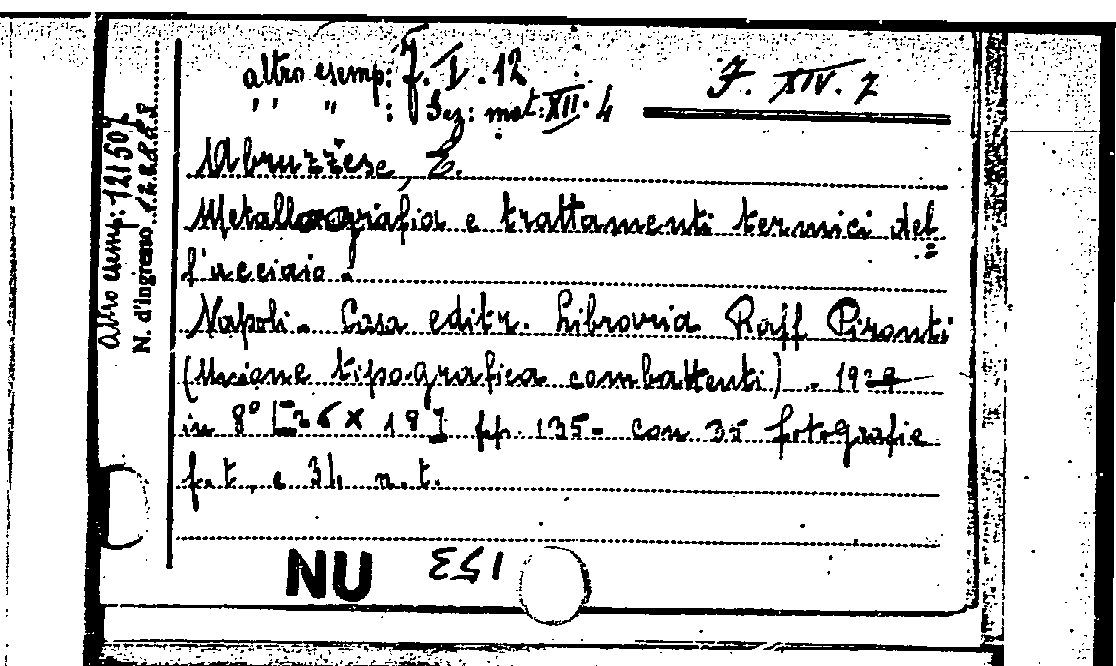 altro esemp: J. I. 12
" " " : Sez: mat: XII. 4
J. XIV. 7
altro esemp: 121507
N. d'ingresso
Abruzzese, E.
Metallografia e trattamenti termici del
l'acciaio.
Napoli. Casa editr. Libreria Raff Pironti
(Unione tipografica combattenti). 1929
in 8° [26 X 18] pp. 135- con 35 fotografie
f.t. e 34 n.t.
NU 153